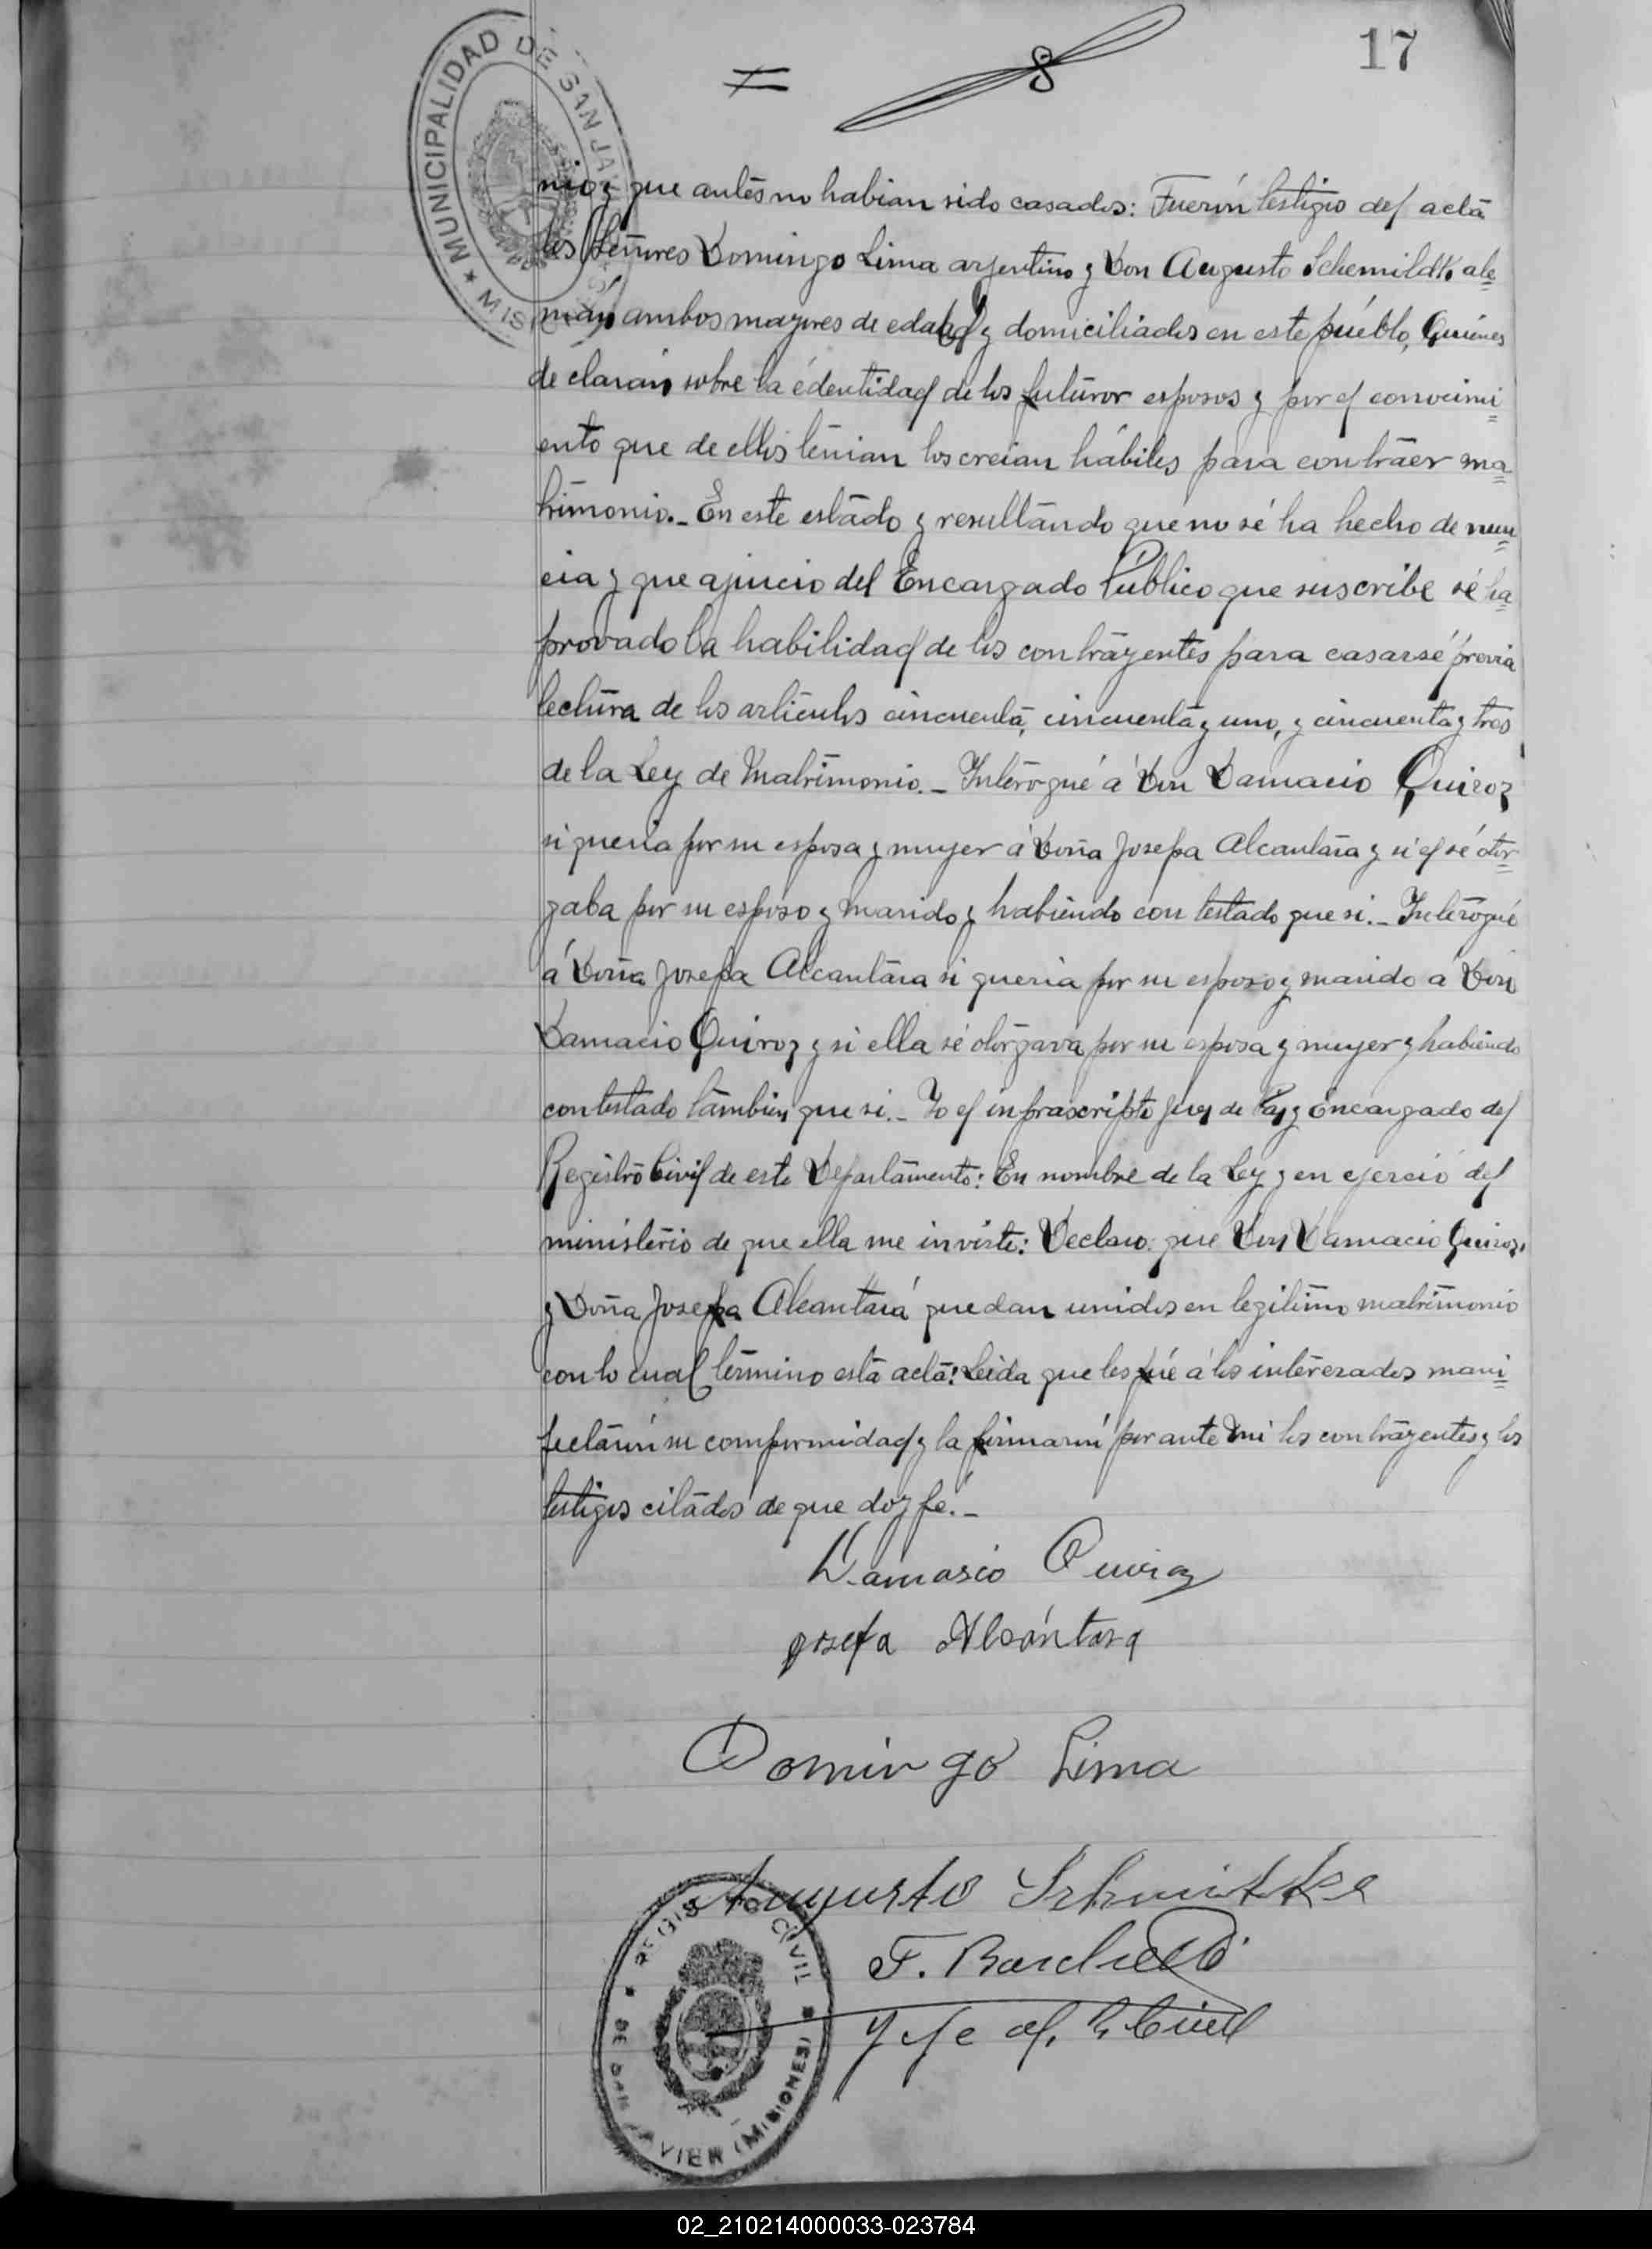 17
MUNICIPALIDAD DE SAN JAV
MIS
nio y que antes no habian sido casados: Fuerón testigio del acta
los Señores Domingo Lima argentino y Don Augusto Schemildk ale
mán ambos mayores de edad y domiciliados en este puéblo, Quienes
de clarán sobre la édentidad de los futuror esposos y por el conocimi
ento que de ellos tenian los creian hábiles para contraer ma
trimonio._ En este estado y resultando que no sé ha hecho de nun
cia y que ajuicio del Encargado Público que suscribe sé ha
provado la habilidad de los contrayentes para casarsé previa
lectura de los articulos cincuenta, cincuenta y uno, y cincuenta y tres
de la Ley de Matrimonio._ Interogué á Don Damacio Quiroz
si queria por su esposa y muyer á Doña Josefa Alcantara y si el sé otor
gaba por su esposo y marido y habiendo con testado que si._ Interogué
á Doña Josefa Alcantara si queria por su esposo y marido á Don
Damacio Quiroz y si ella sé otorgava por su esposa y muyer y habiendo
contestado tambien que si._ Yo el infrascripto Juez de Paz y Encargado del
Registro Civil de este Departamento: En nombre de la Ley y en ejerció del
ministerio de que ella me inviste: Declaro: que Don Damacio Quiroz,
y Doña Josefa Alcantará quedan unidos en legitimo matrimonio
con lo cual término esta acta: Leida que les fué á los interezados mani
festarón su comformidad y la firmarón por ante mi los contrayentes y los
testigos citados de que doy fé._
Damasio Quiroz
Josefa Alcántara
Domingo Lima
Augusto Schmittke
F.
Jefe del R. Civil
REGISTRO CIVIL
DE SAN JAVIER (MISIONES)
02_210214000033-023784